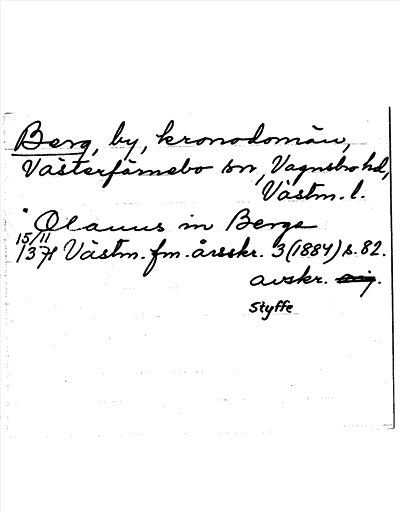 Berg, by, kronodomän,
Västerfärnebo sn, Vagnsbro hd,
Västm. l.
" Olauus in Berge
15/11
1371 Västm. fm. årsskr. 3 (1884) s. 82.
avskr. orig.
Styffe